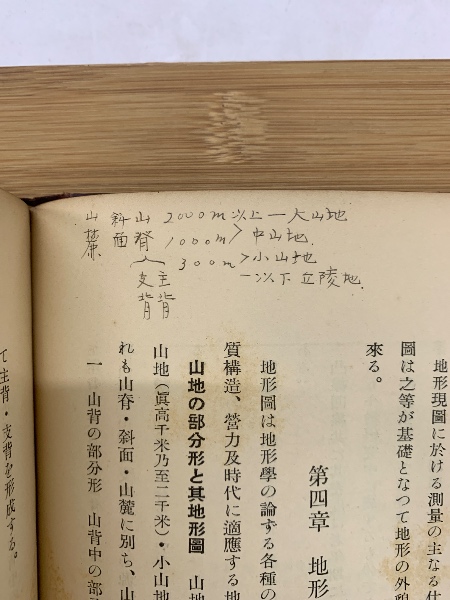 2000m以上一大山地
1000m＞中山地.
300m＞小山地
一以下丘陵地.
山脊
主背
支背
斜面
山麓
地形現圖に於ける測量の主なる
圖は之等が基礎となつて地形の外貌
來る。
第四章 地形
地形圖は地形學の論ずる各種の
質構造、營力及時代に適應する地
山地の部分形と其地形圖 山地
山地(眞高千米乃至二千米)・小山地
れも山脊・斜面・山麓に別ち、山
一 山背の部分形 山背中の部
て主背・支背を形成する。